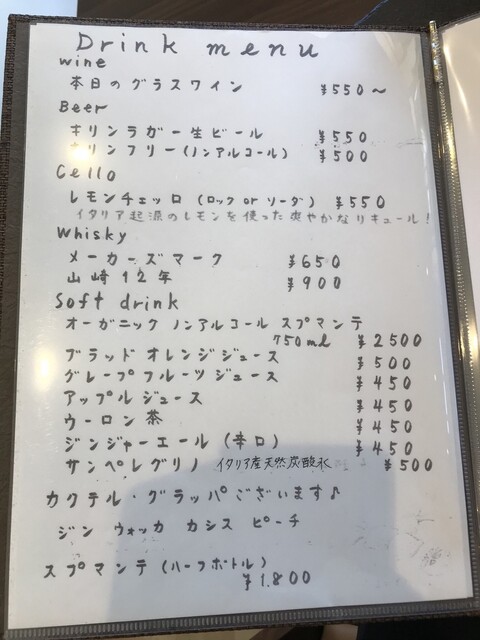 Drink menu
wine
本日のグラスワイン ¥550〜
Beer
キリンラガー生ビール ¥550
キリンフリー(ノンアルコール) ¥500
Cello
レモンチェッロ (ロック or ソーダ) ¥550
イタリア起源のレモンを使った爽やかなリキュール!
Whisky
メーカーズマーク ¥650
山崎12年 ¥900
Soft drink
オーガニック ノンアルコール スプマンテ
750ml ¥2500
ブラッドオレンジジュース ¥500
グレープフルーツジュース ¥450
アップルジュース ¥450
ウーロン茶 ¥450
ジンジャーエール (辛口) ¥450
サンペレグリノ イタリア産天然炭酸水 ¥500
カクテル・グラッパございます♪
ジン ウォッカ カシス ピーチ
スプマンテ (ハーフボトル)
¥1.800